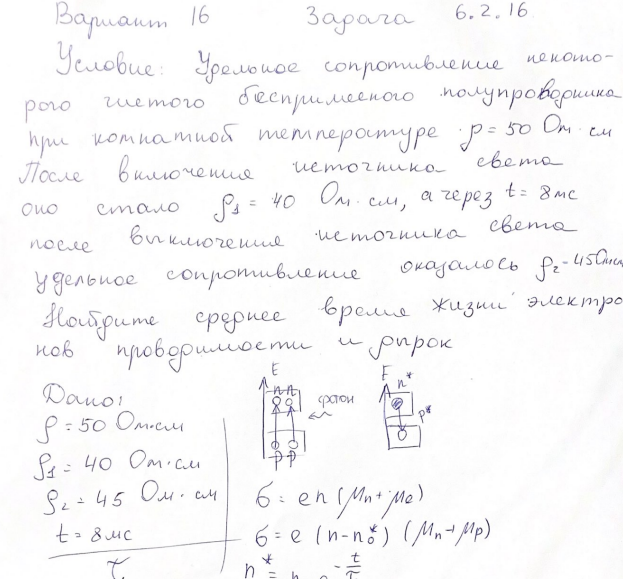 Вариант 16 Задача 6.2.16
Условие: Удельное сопротивление некото-
рого чистого беспримесного полупроводника
при комнатной температуре ρ = 50 Ом·см
После включения источника света
оно стало ρ₁ = 40 Ом·см, а через t = 8мс
после выключения источника света
удельное сопротивление оказалось ρ₂ = 45 Ом·см
Найдите среднее время жизни электро
нов проводимости и дырок
Дано:
ρ = 50 Ом·см
ρ₁ = 40 Ом·см
ρ₂ = 45 Ом·см
t = 8мс
τ
E
n n
фотон
p p
E
n*
p*
σ = en(μn + μe)
σ = e(n-n₀*)(μn + μp)